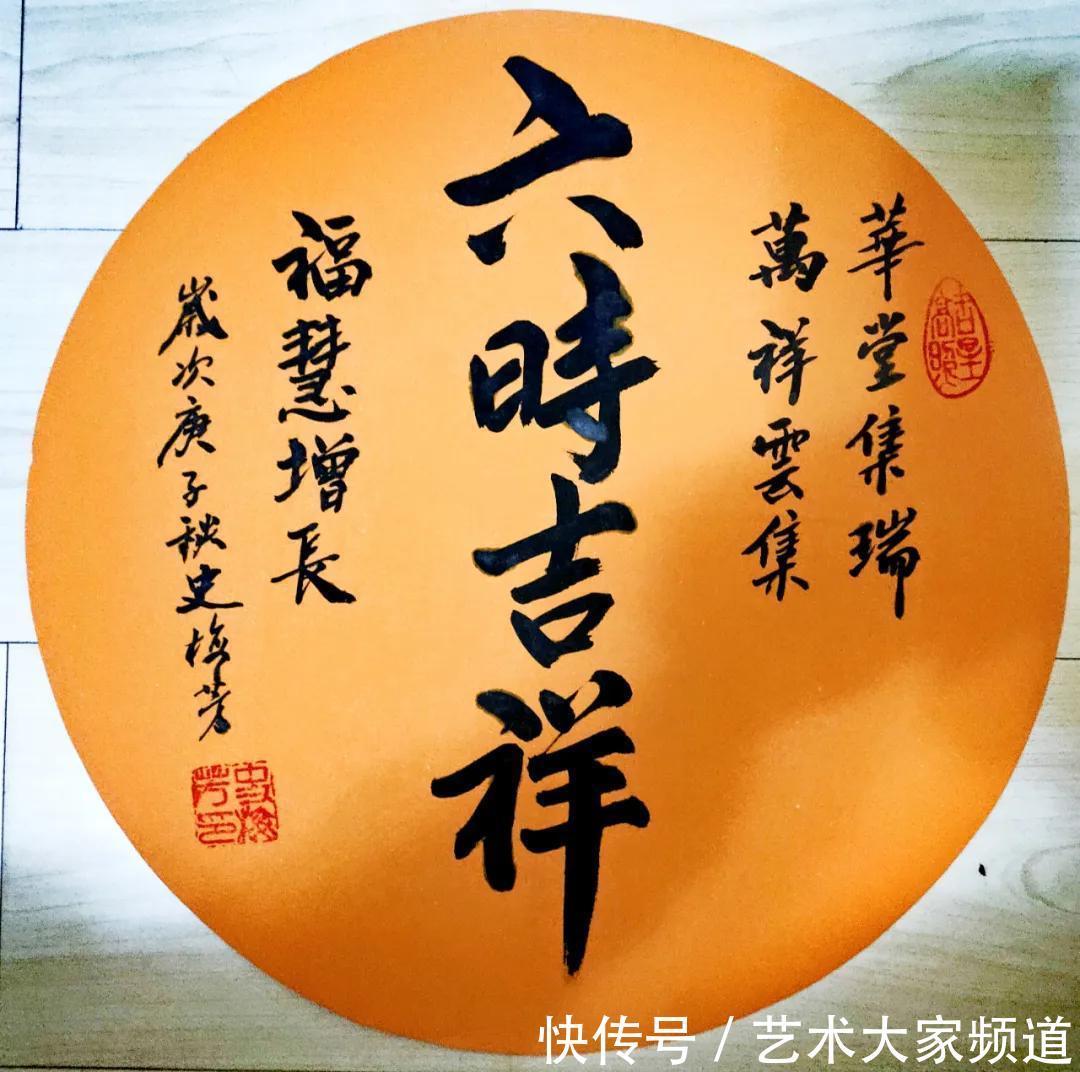 華堂集瑞
萬祥雲集
六時吉祥
福慧增長
歲次庚子秋史梅芳
史梅芳印
快传号 / 艺术大家频道